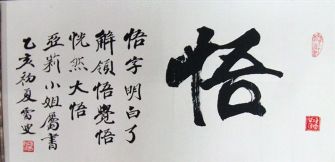 悟
悟字明白了
解領悟覺悟
恍然大悟
亞莉小姐屬書
乙亥初夏